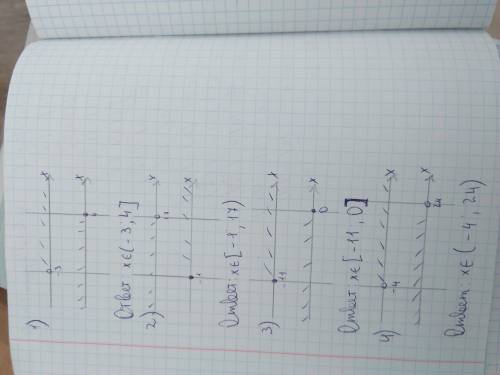 1)
-3 x
4 x
Ответ: x∈(-3; 4]
2)
17 x
-1 x
Ответ: x∈[-1; 17)
3)
-11 x
0 x
Ответ: x∈[-11; 0]
4)
-4 x
24 x
Ответ: x∈(-4; 24)